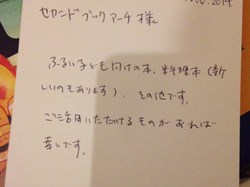 2019
セカンドブックアーチ 様
ふるい子ども向けの本、料理本(新
しいのもあります)、その他です。
ご活用いただけるものがあれば
幸いです。